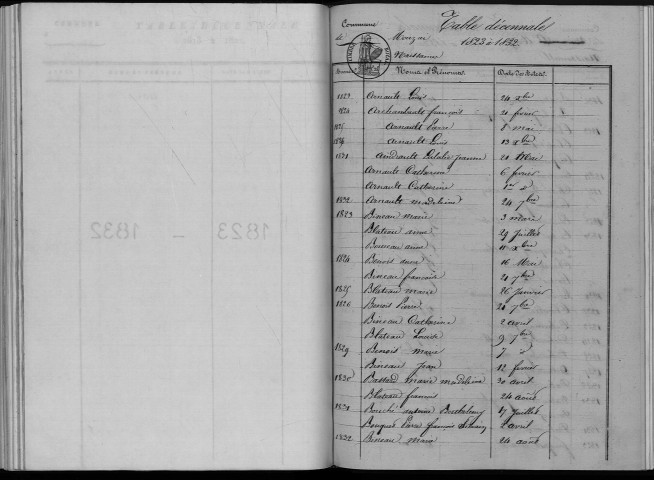 1823 - 1832
Commune Table décennale
de Mouzac 1823 à 1832
Naissances
Années Noms et Prénoms Date des Actes
1823 Arnault Louis 24 Xbre
1824 Archambault françois 21 fevrier
1825 Arnault Pierre 8 mai
1826 Arnault Louis 13 Xbre
1831 jeanne 21 Mai
Arnault Catherine 6 fevrier
Arnault Catherine 1er d
1832 Arnault madeleine 24 7bre
1823 Bineau marie 3 mars
Blateau anne 29 Juillet
Bonneau anne 11 Xbre
1824 Benoist anne 16 Mai
Bineau françoise 21 7bre
1825 Blateau marie 26 Janvier
1826 Benoist Pierre 21 7bre
Bineau Catherine 2 avril
Blateau Louise 9 7bre
1829 Benoist marie 7 d
Bineau Jean 12 fevrier
1830 Bassard marie madeleine 30 avril
Blateau francois 24 août
1831 Bouché antoine Barthelemy 17 Juillet
Bouquet Pierre françois 2 avril
1832 Bineau marie 24 août